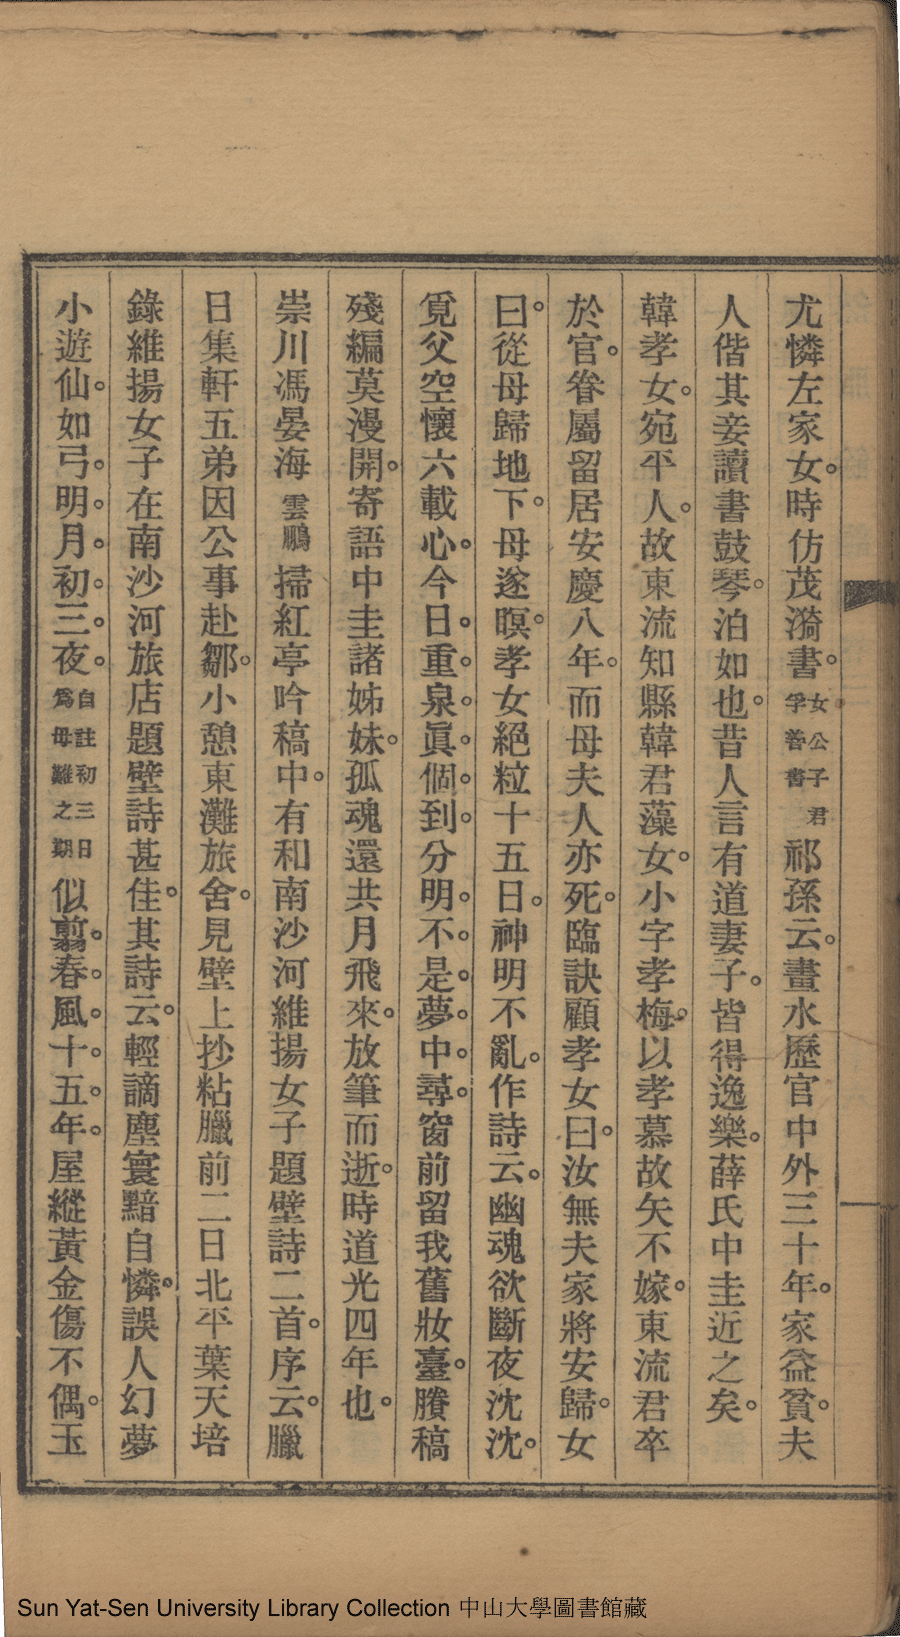 尤憐左家女。時仿茂漪書。女公子君孚善書祁孫云。畫水歷官中外三十年。家益貧。夫
人偕其妾讀書鼓琴。泊如也。昔人言有道妻子。皆得逸樂。薛氏中圭近之矣。
韓孝女。宛平人。故東流知縣韓君藻女。小字孝梅。以孝慕故矢不嫁。東流君卒
於官。眷屬留居安慶八年。而母夫人亦死。臨訣顧孝女曰。汝無夫家將安歸。女
曰。從母歸地下。母遂瞑。孝女絕粒十五日。神明不亂。作詩云。幽魂欲斷夜沈沈。
覓父空懷六載心。今日。重。泉。眞。個。到。分明。不。是。夢。中。尋。窗前留我舊妝臺。賸稿
殘編莫漫開。寄語中圭諸姊妹。孤魂還共月飛來。放筆而逝。時道光四年也。
崇川馮晏海雲鵬掃紅亭吟稿中。有和南沙河維揚女子題壁詩二首。序云。臘
日集軒五弟因公事赴鄒。小憩東灘旅舍。見壁上抄粘臘前二日北平葉天培
錄維揚女子在南沙河旅店題壁詩甚佳。其詩云。輕謫塵寰黯自憐。誤人幻夢
小遊仙。如弓。明。月。初。三。夜。自註初三日爲母難之期似翦。春。風。十。五。年。屋縱黃金傷不偶。玉
Sun Yat-Sen University Library Collection 中山大學圖書館藏